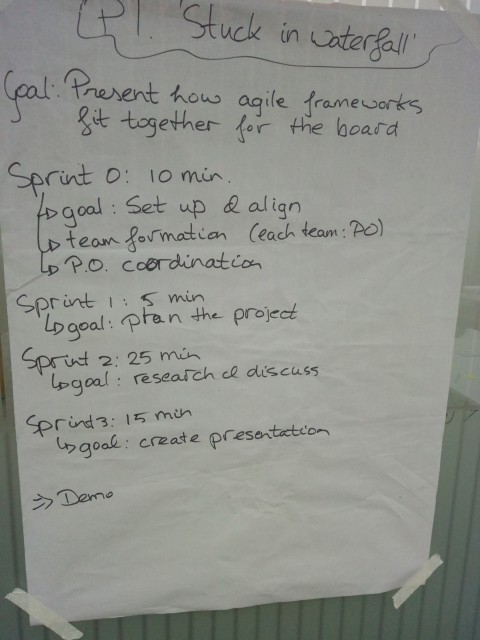 P1. 'Stuck in waterfall'
Goal: Present how agile frameworks
fit together for the board
Sprint 0: 10 min.
↳ goal: Set up & align
↳ team formation (each team: PO)
↳ P.O. coordination
Sprint 1: 5 min
↳ goal: plan the project
Sprint 2: 25 min
↳ goal: research & discuss
Sprint 3: 15 min
↳ goal: create presentation
⇒ Demo